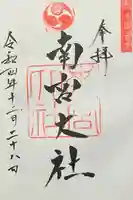 奉拝
南宮大社
令和四年十二月二十八日